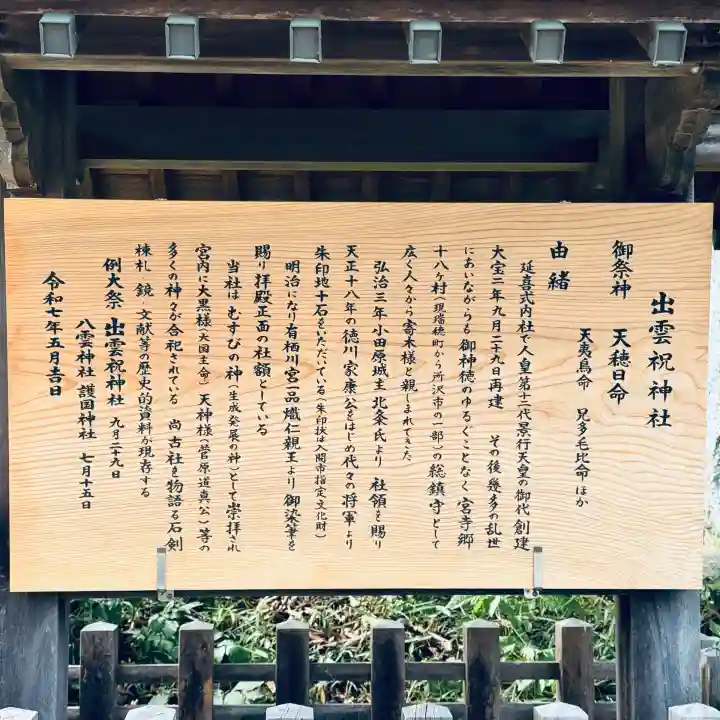 出雲祝神社
御祭神　天穂日命
天夷鳥命　兄多毛比命ほか
由緒
延喜式内社で人皇第十二代景行天皇の御代創建
大宝二年九月二十九日再建　その後幾多の乱世
にあいながらも御神徳のゆるぐことなく宮寺郷
十八ヶ村（現瑞穂町から所沢市の一部）の総鎮守として
広く人々から寄木様と親しまれてきた
弘治三年小田原城主北条氏より社領を賜り
天正十八年の徳川家康公をはじめ代々の将軍より
朱印地十石をいただいている（朱印状は入間市指定文化財）
明治になり有栖川宮一品熾仁親王より御染筆を
賜り拝殿正面の社額としている
当社はむすびの神（生成発展の神）として崇拝され
宮内に大黒様（大国主命）天神様（菅原道真公）等の
多くの神々が合祀されている　尚古社を物語る石剣
棟札・鏡・文献等の歴史的資料が現存する
例大祭　出雲祝神社　九月二十九日
八雲神社　護国神社　七月十五日
令和七年五月吉日